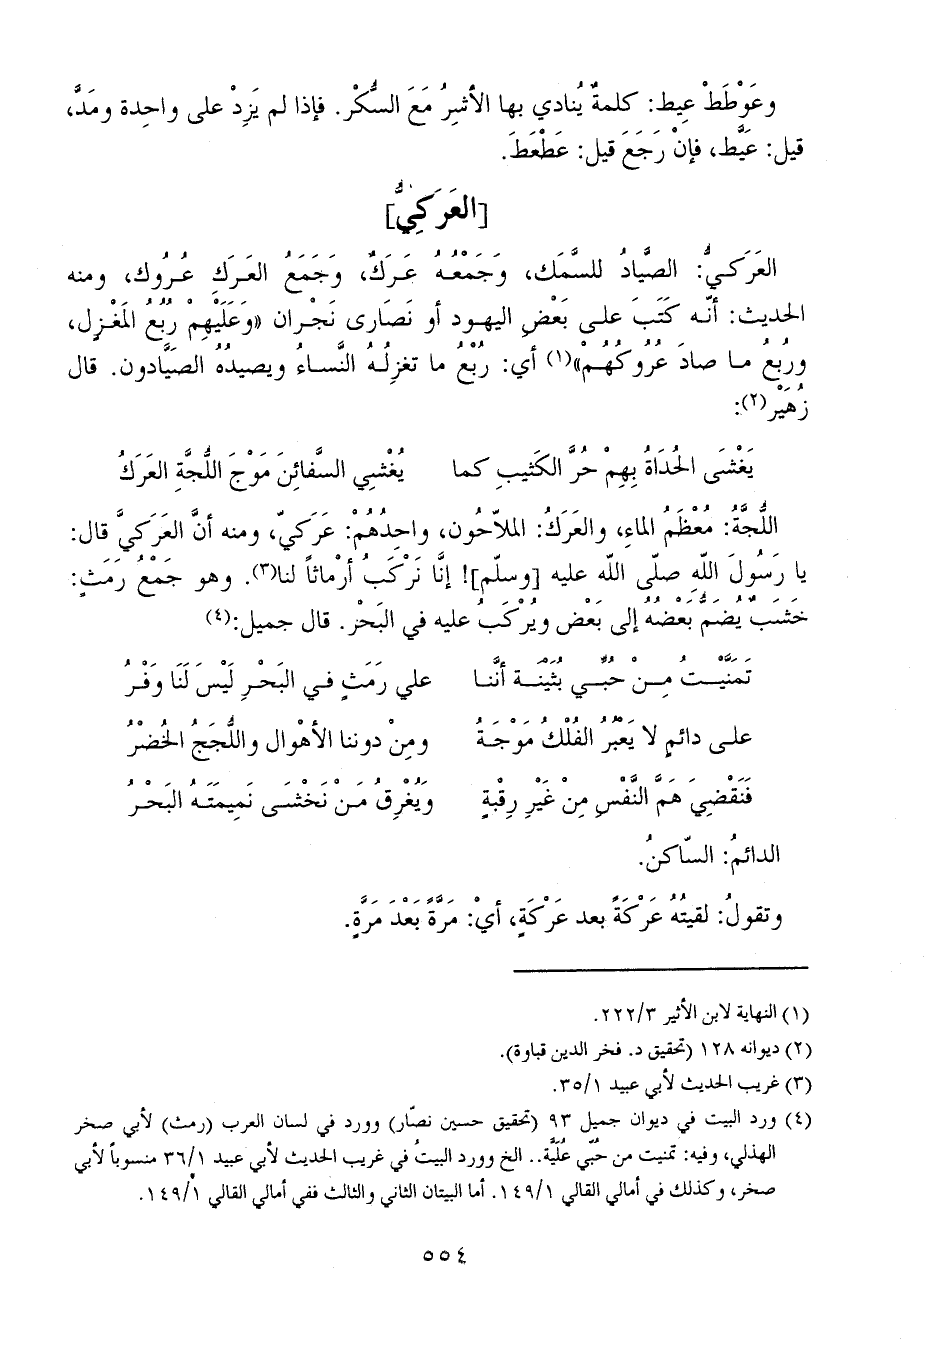 وعَوْطَطْ عِيط: كلمةٌ يُنادي بها الأشِرُ مَعَ السُّكْر. فإذا لم يَزِدْ على واحِدة ومَدَّ،
قيل: عَيَّط، فإنْ رَجَعَ قيل: عَطْعَطَ.
[العَرَكِيُّ]
العَرَكيُّ: الصيَّادُ للسَّمَك، وَجَمْعُه عَرَكٌ، وَجَمَعُ العَرَكِ عُرُوك، ومنه
الحديث: أنّه كَتَبَ على بَعْضِ اليهود أو نَصَارى نَجْران «وعَلَيْهِمْ رُبُعُ المَغْزِل،
ورُبُعُ ما صادَ عُرُوكُهُمْ»(١) أي: رُبْعُ ما تغزِلُهُ النِّساءُ ويصيدُهُ الصيَّادون. قال
زُهَيْر(٢):
يَغْشَى الحُدَاةُ بِهِمْ حُرَّ الكَثِيبِ كما يُغْشِي السفَّائِنَ مَوْجَ اللُّجَّةِ العَرَكُ
اللُّجَّةُ: مُعْظَمُ الماءِ، والعَرَكُ: الملاّحُون، واحِدُهُمْ: عَرَكيّ، ومنه أنَّ العَرَكيَّ قال:
يا رَسُولَ اللّهِ صلّى اللّه عليه [وسلّم]! إنَّا نَرْكَبُ أرْماثاً لنا(٣). وهو جَمْعُ رَمَثٍ:
خَشَبٌ يُضَمُّ بَعْضُهُ إلى بَعْض ويُرْكَبُ عليه في البَحْر. قال جميل:(٤)
تمنَّيْتُ مِنْ حُبِّي بُثَيْنَةَ أنَّنا على رَمَثٍ في البَحْرِ لَيْسَ لَنَا وَفْرُ
على دائمٍ لا يَعْبُرُ الفُلْكُ مَوْجَهُ ومِنْ دوننا الأهْوال واللُّجَجُ الخُضْرُ
فَنَقْضِيَ هَمَّ النَّفْسِ مِن غَيْرِ رِقْبَةٍ وَيُغْرِقُ مَنْ نَخْشَى نَمِيمَتَهُ البَحْرُ
الدائمُ: السّاكنُ.
وتقولُ: لقيتُهُ عَرْكَةً بعد عَرْكَةٍ، أيْ: مَرَّةً بَعْدَ مَرَّةٍ.
(١) النهاية لابن الأثير ٢٢٢/٣.
(٢) ديوانه ١٢٨ (تحقيق د. فخر الدين قباوة).
(٣) غريب الحديث لأبي عبيد ٣٥/١.
(٤) ورد البيت في ديوان جميل ٩٣ (تحقيق حسين نصّار) وورد في لسان العرب (رمث) لأبي صخر
الهذلي، وفيه: تمنيت من حُبّي عُلَيَّة.. الخ وورد البيتُ في غريب الحديث لأبي عبيد ٣٦/١ منسوباً لأبي
صخر، وكذلك في أمالي القالي ١٤٩/١. أما البيتان الثاني والثالث ففي أمالي القالي ١٤٩/١.
٥٥٤